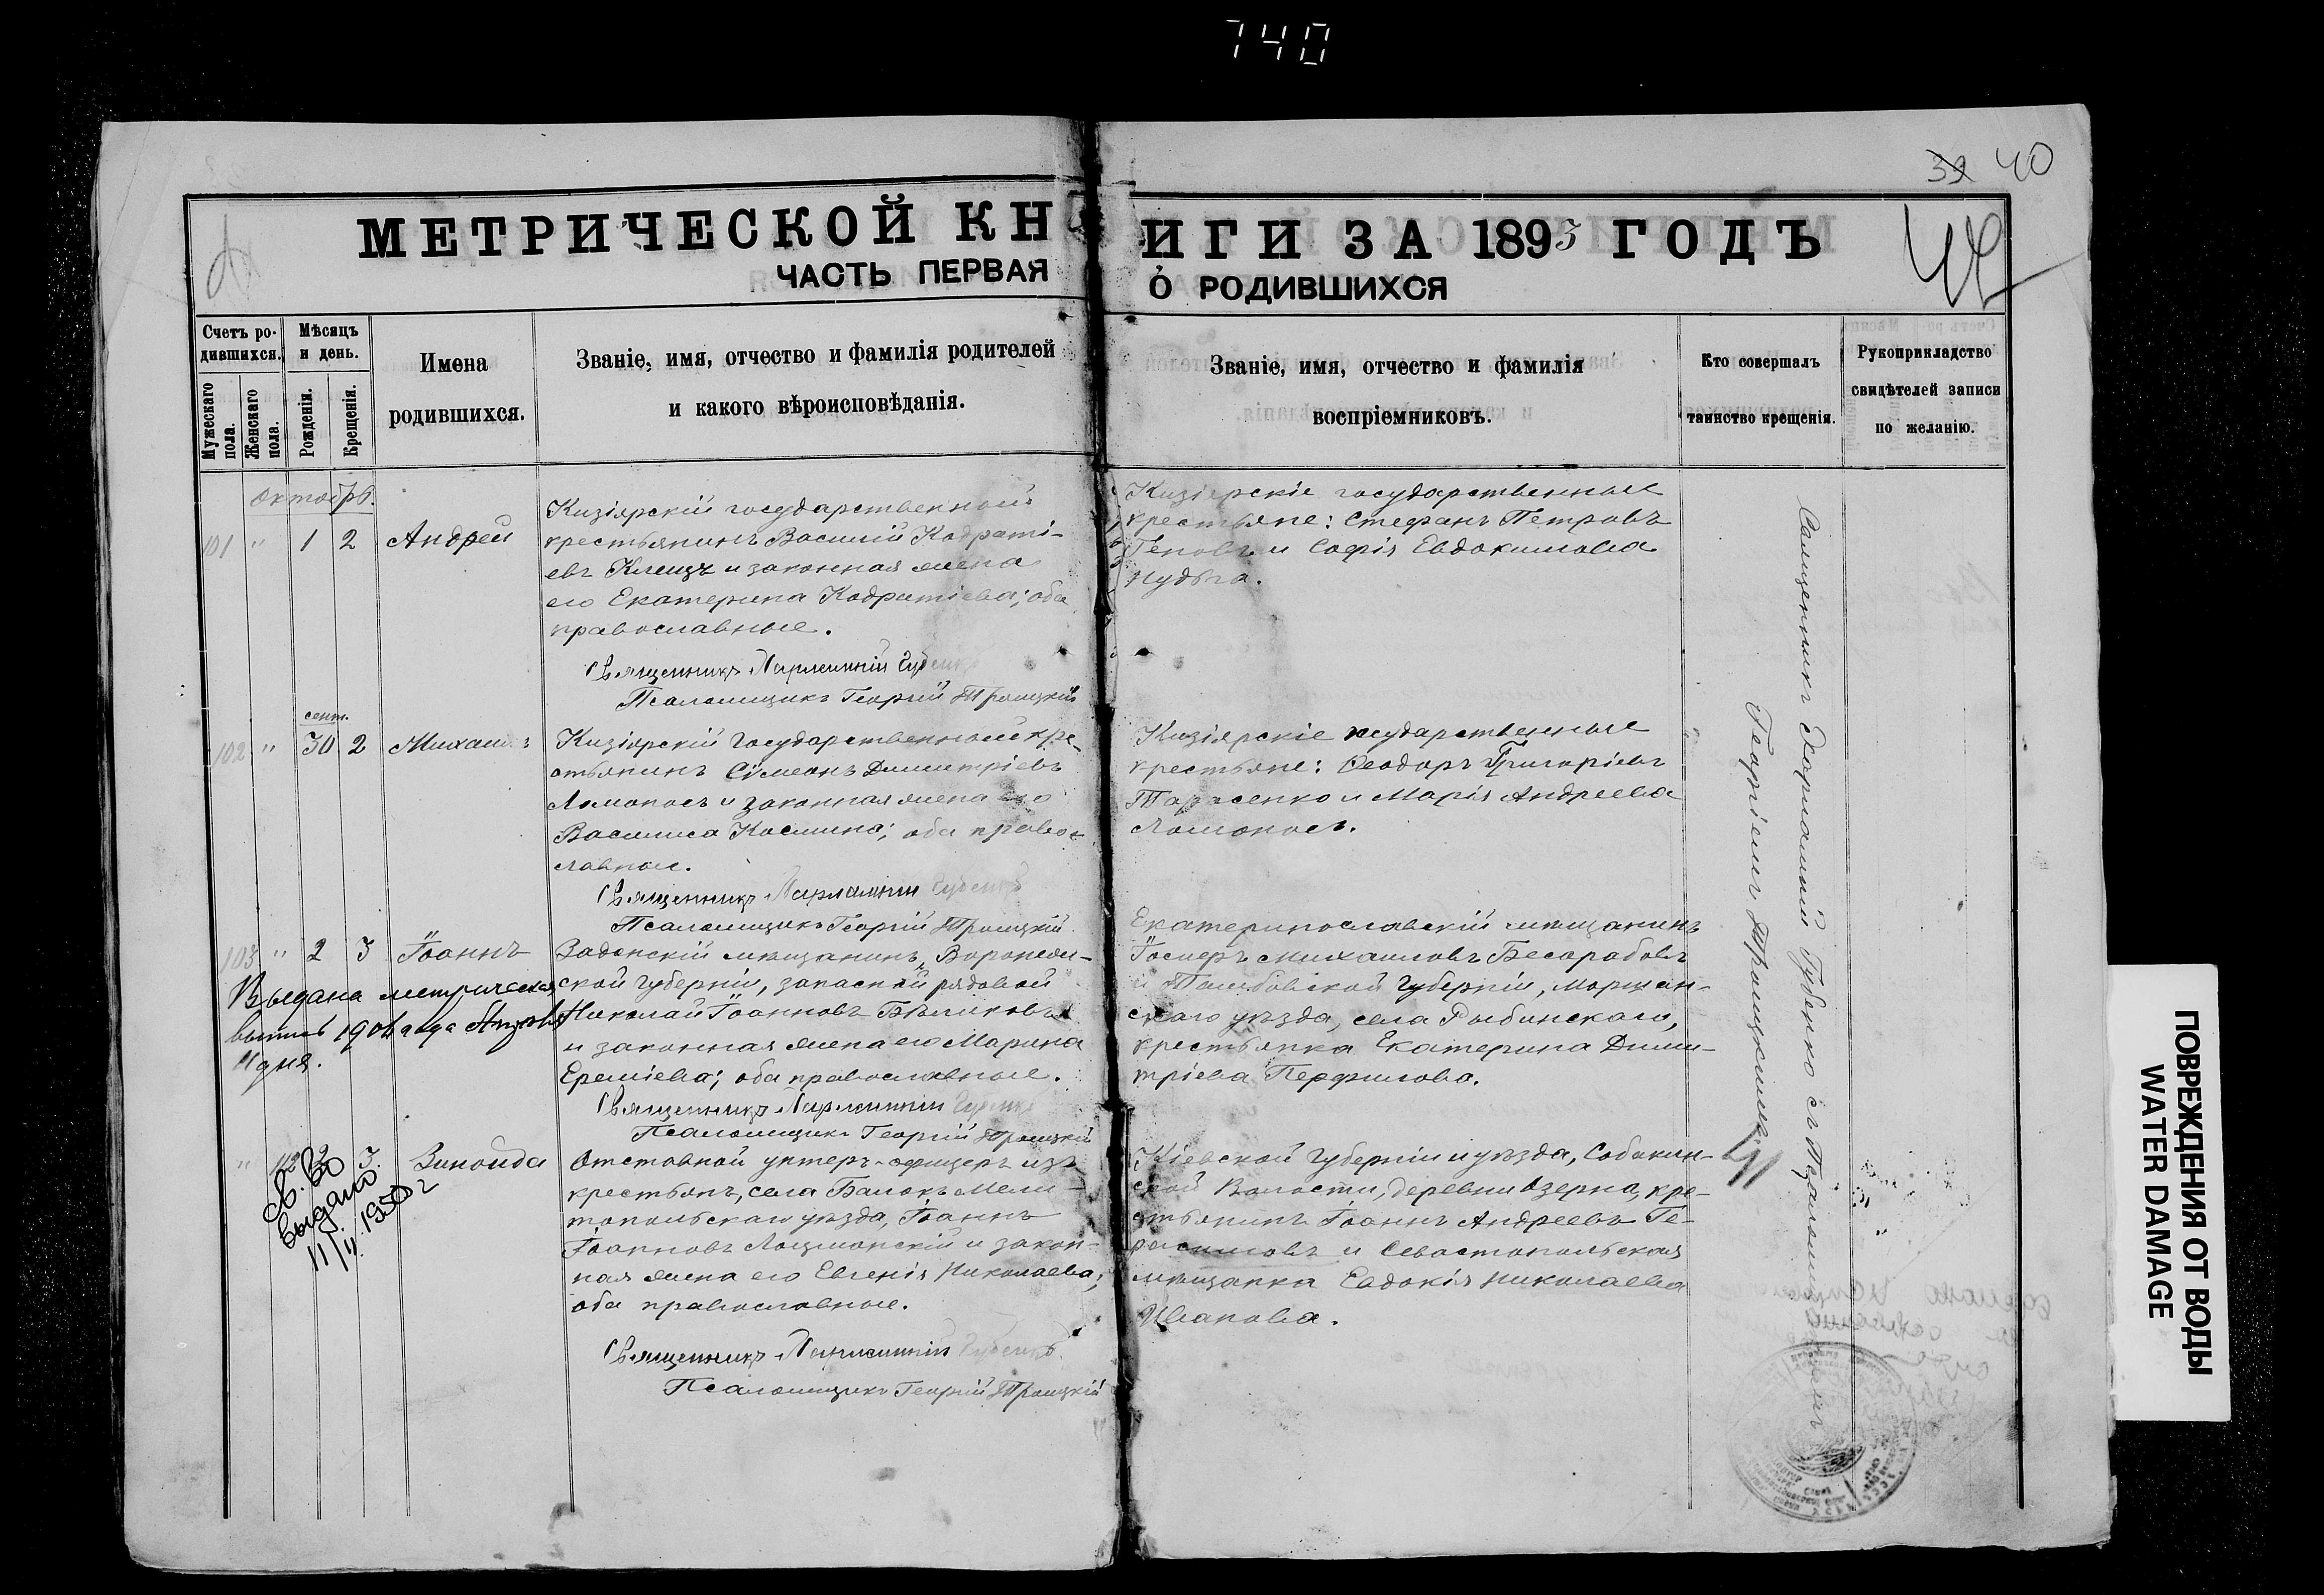 740
39 40
МЕТРИЧЕСКОЙ КНИГИ ЗА 1893 ГОДЪ
ЧАСТЬ ПЕРВАЯ О РОДИВШИХСЯ
42
Счетъ ро-
дившихся.
Мужескаго пола.
Женскаго пола.
Мѣсяцъ
и день.
Рожденія.
Крещенія.
Имена
родившихся.
Званіе, имя, отчество и фамилія родителей
и какого вѣроисповѣданія.
Званіе, имя, отчество и фамилія
воспріемниковъ.
Кто совершалъ
таинство крещенія.
Рукоприкладство
свидѣтелей записи
по желанію.
Октябрь.
101 " 1 2 Андрей
Кизіярскій государственный
крестьянинъ Василій Кодраті-
евъ Клещъ и законная жена
его Екатерина Кодратіева; оба
православные.
Священникъ Харлампій Губенко
Псаломщикъ Георгій Троицкій
Кизіярскіе государственные
крестьяне: Стефанъ Петровъ
и Софія Евдокимова
Нудьга.
сент.
102 " 30 2 Михаилъ
Кизіярскій государственный кре-
стьянинъ Сѵмеонъ Димитріевъ
Ломоносъ и законная жена его
Василиса Косьмина; оба право-
славные.
Священникъ Харлампій Губенко
Псаломщикъ Георгій Троицкій
Кизіярскіе государственные
крестьяне: Ѳеодоръ Григоріевъ
Тарасенко и Марія Андреева
Ломоносъ.
103 " 2 3 Іоаннъ
Задонскій мѣщанинъ, Воронеж-
ской губерніи, запасной рядовой
Николай Іоанновъ Бѣликовъ
и законная жена его Марина
Ереміева; оба православные.
Священникъ Харлампій Губенко
Псаломщикъ Георгій Троицкій
Выдана метрическая
выпись 1904 года Апрѣля
дня.
Екатеринославскій мѣщанинъ
Михаиловъ Бесарабовъ
и Тамбовской губерніи, Моршан-
скаго уѣзда, села Рыбинскаго,
крестьянка Екатерина Дими-
тріева Перфилова.
" 3. Зинаида
Отставной унтеръ-офицеръ изъ
крестьянъ, села Балокъ Мели-
топольскаго уѣзда, Іоаннъ
Іоанновъ Лоцманскій и закон-
ная жена его Евгенія Николаева;
оба православные.
Священникъ Харлампій Губенко
Псаломщикъ Георгій Троицкій
св. во
выдано
11/II 1950 г
Кіевской губерніи и уѣзда,
Волости, деревни Озерна, кре-
стьянинъ Іоаннъ Андреевъ Ге-
расимовъ и Севастопольская
мѣщанка Евдокія Николаева
Иванова.
Священникъ Харлампій Губенко съ Псаломщикомъ
Георгіемъ Троицкимъ.
ПОВРЕЖДЕНИЯ ОТ ВОДЫ
WATER DAMAGE